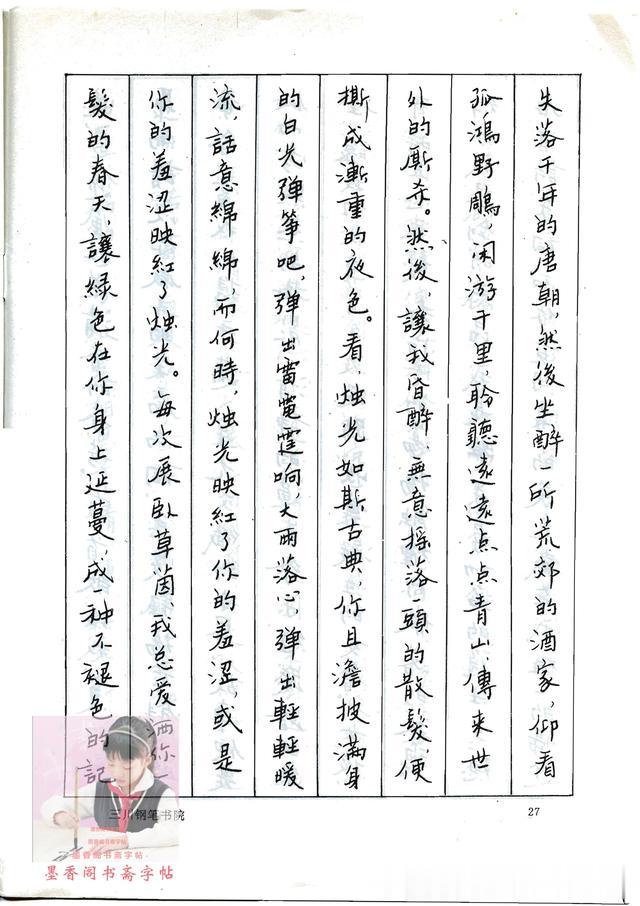 失落千年的唐朝，然後坐醉一所荒郊的酒家，仰看
孤鴻野鵰，闲游千里，聆聽遠遠点点青山，傳来世
外的厮杀。然後，讓我昏醉，無意摇落一頭的散髮，便
撕成漸重的夜色。看，烛光如斯古典，你且澹披滿身
的白光弹筝吧，弹出雷電霆响，大雨落心，弹出輕輕暖
流，話意綿綿，而何時，烛光映紅了你的羞涩，或是
你的羞涩映紅了烛光。每次展卧草茵，我总爱洒你一
髮的春天，讓緑色在你身上延蔓，成一种不褪色的記
三川钢笔书院
27
墨香阁书斋字帖
墨香阁书斋字帖